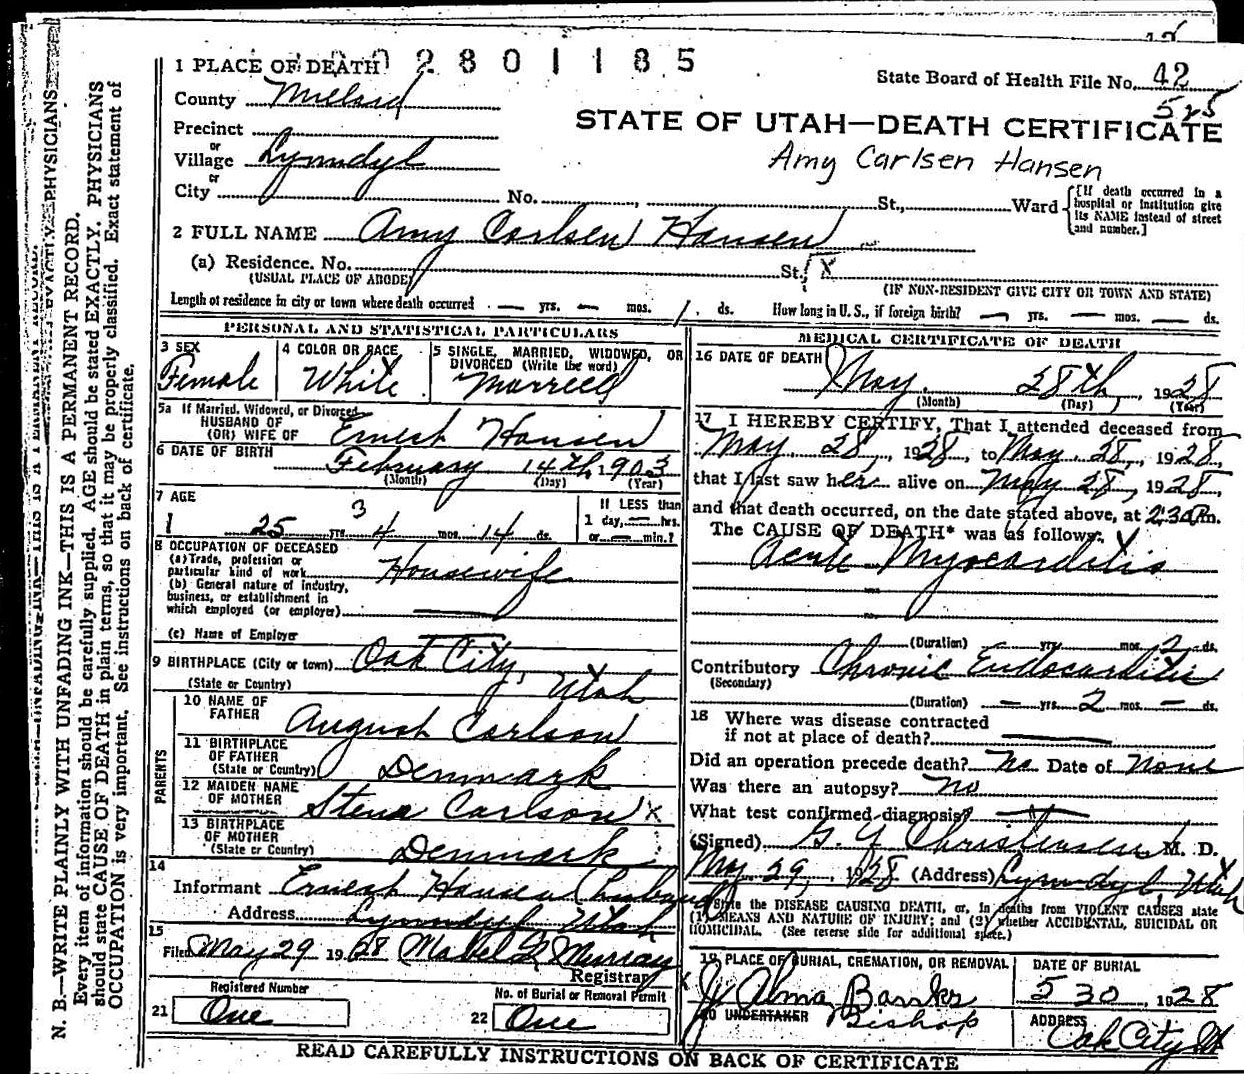 1 PLACE OF DEATH 2801185
State Board of Health File No. 42
525
County Millard
STATE OF UTAH—DEATH CERTIFICATE
Precinct
or
Village Lynndyl
Amy Carlsen Hansen
or
City No. , St., Ward {[If death occurred in a hospital or institution give its NAME instead of street and number.]
2 FULL NAME Amy Carlsen Hansen
(a) Residence. No. St. X
(USUAL PLACE OF ABODE) (IF NON-RESIDENT GIVE CITY OR TOWN AND STATE)
Length of residence in city or town where death occurred — yrs. — mos. 1 ds. How long in U. S., if foreign birth? — yrs. — mos. — ds.
PERSONAL AND STATISTICAL PARTICULARS
3 SEX
Female
4 COLOR OR RACE
White
5 SINGLE, MARRIED, WIDOWED, OR
DIVORCED (Write the word)
Married
5a If Married, Widowed, or Divorced
HUSBAND OF
(OR) WIFE OF Ernest Hansen
6 DATE OF BIRTH February 14th 1903
(Month) (Day) (Year)
7 AGE
25 yrs. 3 4 mos. 14 ds.
If LESS than
1 day, — hrs.
or — min.?
8 OCCUPATION OF DECEASED
(a) Trade, profession or
particular kind of work Housewife
(b) General nature of industry,
business, or establishment in
which employed (or employer) —
(c) Name of Employer —
9 BIRTHPLACE (City or town) Oak City,
(State or Country) Utah
PARENTS
10 NAME OF
FATHER August Carlson
11 BIRTHPLACE
OF FATHER
(State or Country) Denmark
12 MAIDEN NAME
OF MOTHER Stena Carlson X
13 BIRTHPLACE
OF MOTHER
(State or Country) Denmark
14
Informant Ernest Hansen (husband)
Address Lynndyl Utah
15
Filed May 29 1928 Mabel Murray
Registrar
Registered Number
21 One
No. of Burial or Removal Permit
22 One
MEDICAL CERTIFICATE OF DEATH
16 DATE OF DEATH
May 28th, 1928
(Month) (Day) (Year)
17 I HEREBY CERTIFY, That I attended deceased from
May 28, 1928, to May 28, 1928,
that I last saw her alive on May 28, 1928,
and that death occurred, on the date stated above, at 2:30 P.m.
The CAUSE OF DEATH* was as follows:
Acute Myocarditis
(Duration) yrs. mos. 2 ds.
Contributory Chronic Endocarditis
(Secondary)
(Duration) — yrs. 2 mos. — ds.
18 Where was disease contracted
if not at place of death? —
Did an operation precede death? No Date of None
Was there an autopsy? No
What test confirmed diagnosis?
(Signed) G. Y. Christensen M. D.
May 29, 1928 (Address) Lynndyl, Utah
*State the DISEASE CAUSING DEATH, or, in deaths from VIOLENT CAUSES state
(1) MEANS AND NATURE OF INJURY; and (2) whether ACCIDENTAL, SUICIDAL OR
HOMICIDAL. (See reverse side for additional space.)
19 PLACE OF BURIAL, CREMATION, OR REMOVAL
DATE OF BURIAL
5 30, 1928
J. Alma Banks
20 UNDERTAKER Bishop
ADDRESS
Oak City Ut
READ CAREFULLY INSTRUCTIONS ON BACK OF CERTIFICATE
N. B.—WRITE PLAINLY WITH UNFADING INK—THIS IS A PERMANENT RECORD.
Every item of information should be carefully supplied. AGE should be stated EXACTLY. PHYSICIANS
should state CAUSE OF DEATH in plain terms, so that it may be properly classified. Exact statement of
OCCUPATION is very important. See instructions on back of certificate.